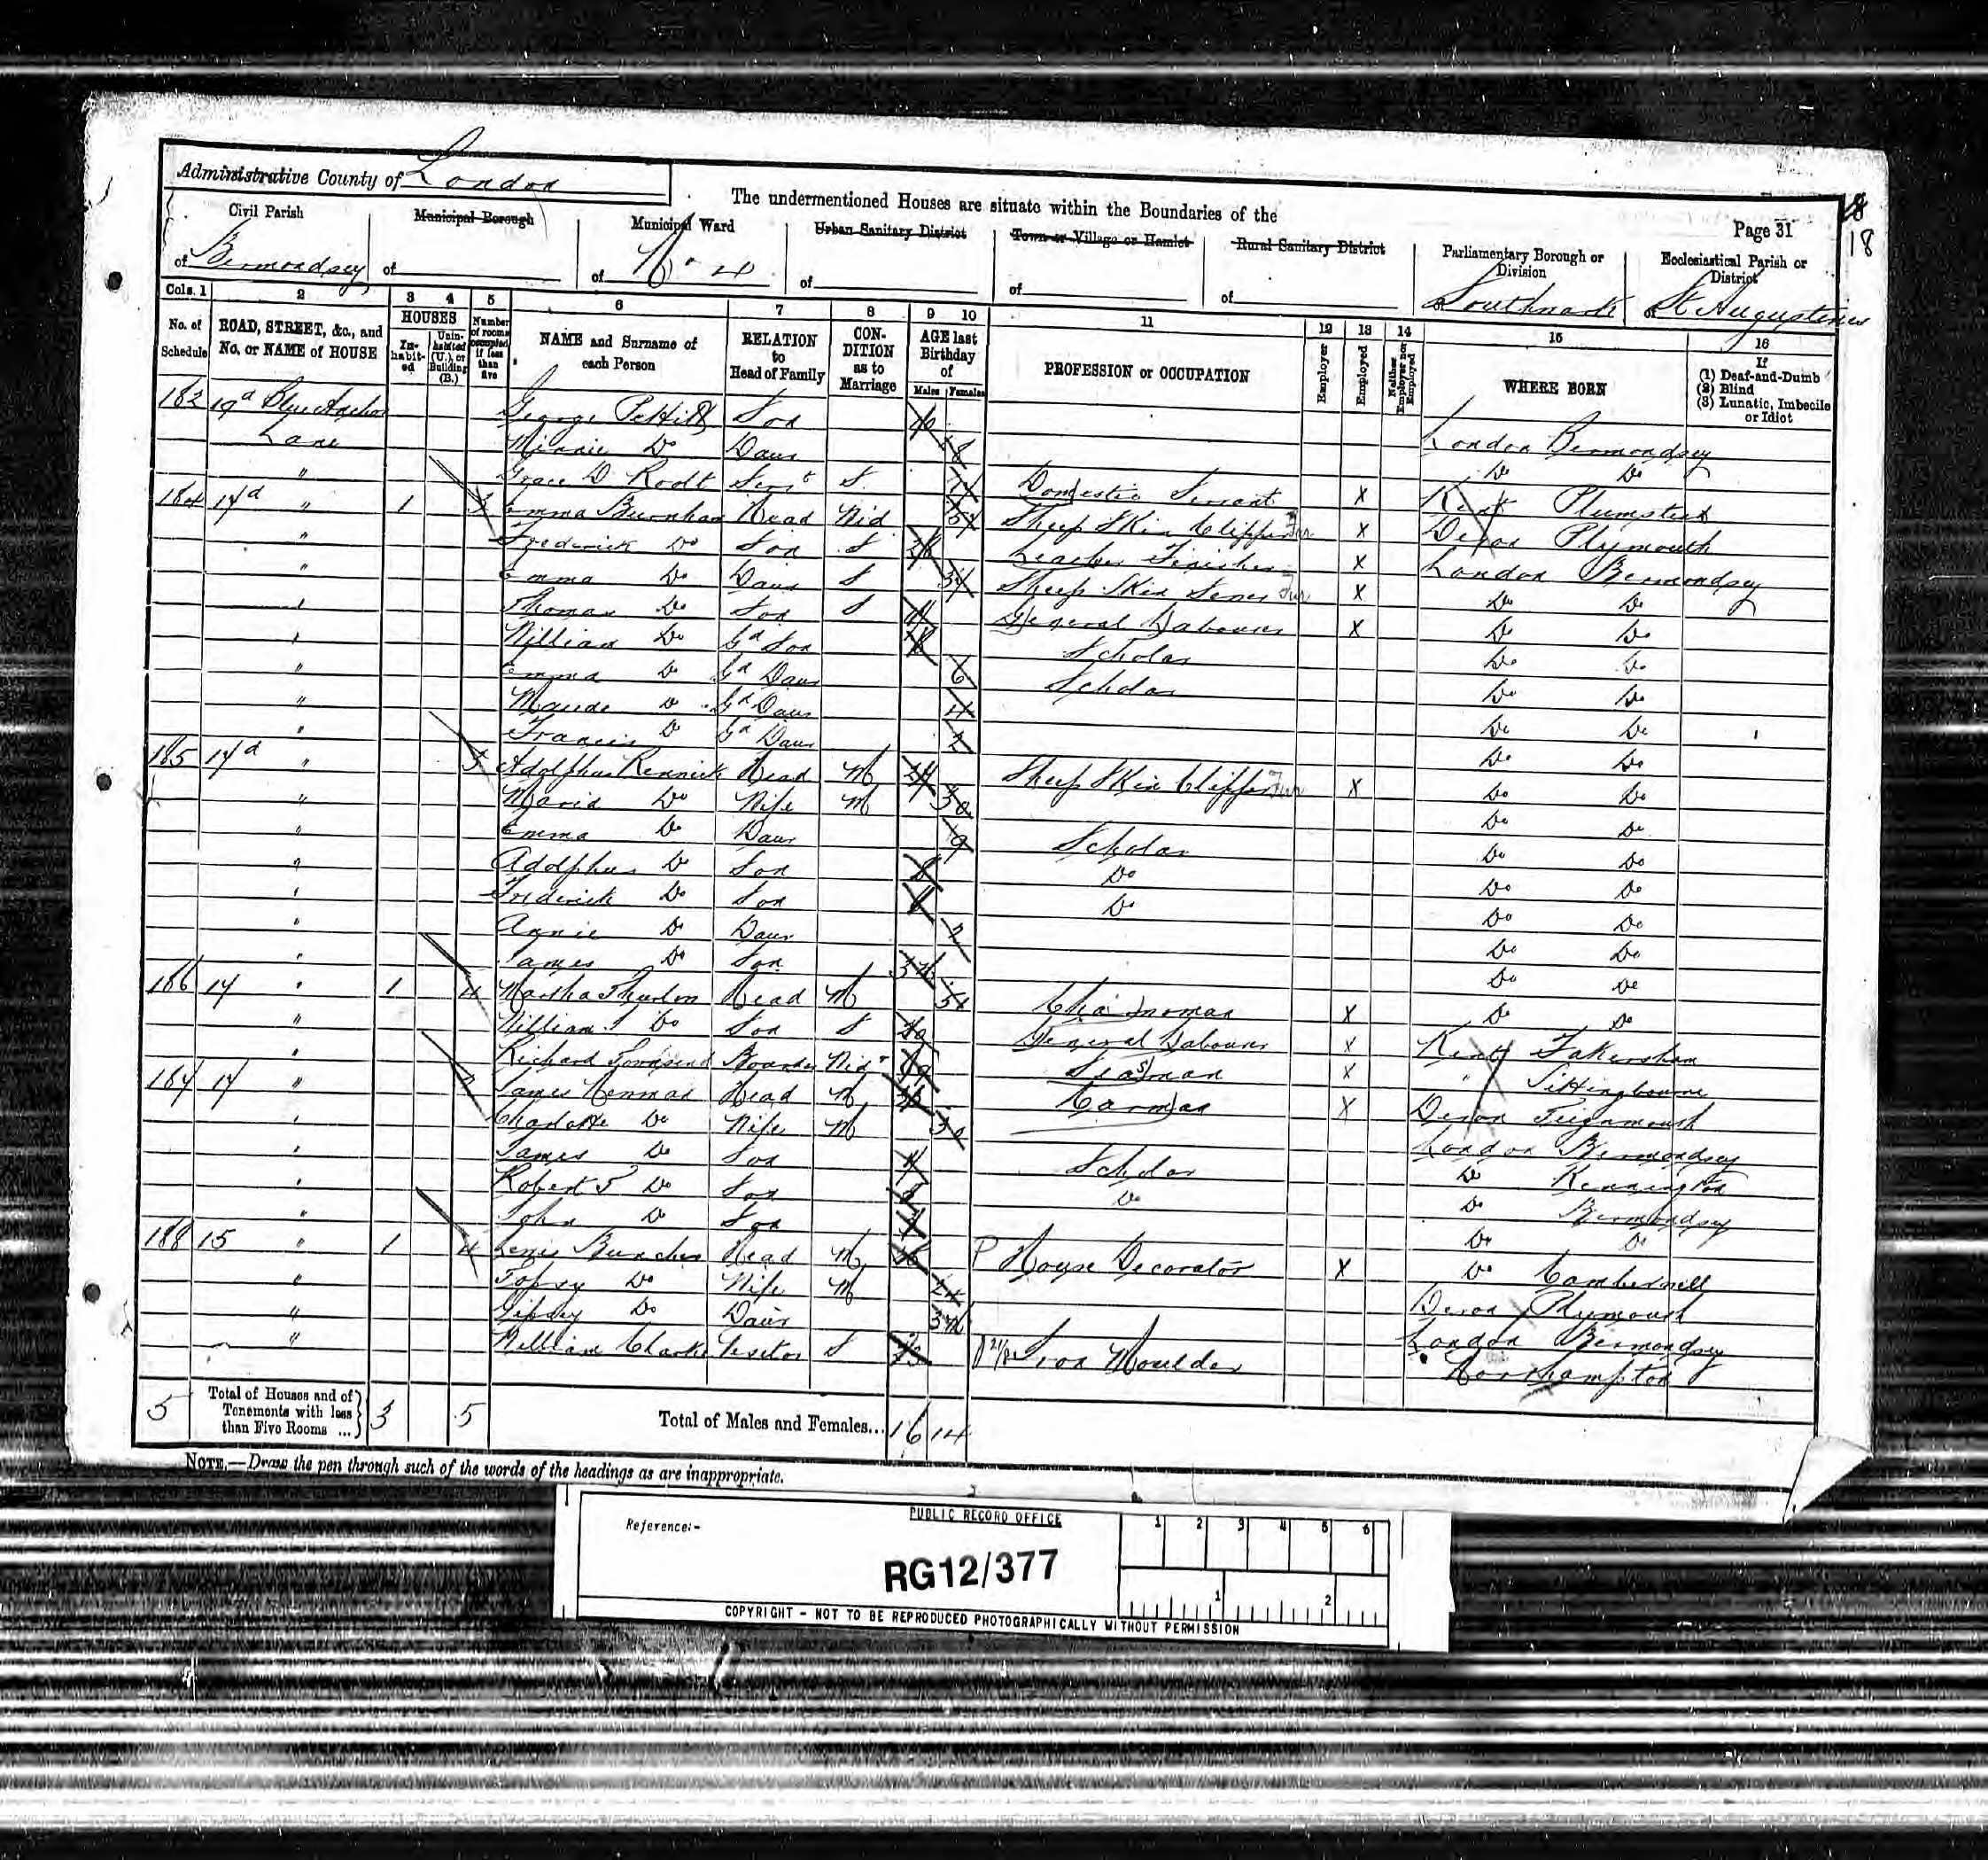 Administrative County of London
The undermentioned Houses are situate within the Boundaries of the
Page 31
18
Civil Parish
of Bermondsey
Municipal Borough
of
Municipal Ward
of No 4
Urban Sanitary District
of
Town or Village or Hamlet
of
Rural Sanitary District
of
Parliamentary Borough or Division
of Southwark
Ecclesiastical Parish or District
of St Augustines
Cols. 1 2 3 4 5 6 7 8 9 10 11 12 13 14 15 16
No. of Schedule
ROAD, STREET, &c., and No. or NAME of HOUSE
HOUSES
In-habit-ed
Unin-habited (U.), or Building (B.)
Number of rooms occupied if less than five
NAME and Surname of each Person
RELATION to Head of Family
CON-DITION as to Marriage
AGE last Birthday of
Males Females
PROFESSION or OCCUPATION
Employer
Employed
Neither Employer nor Employed
WHERE BORN
If
(1) Deaf-and-Dumb
(2) Blind
(3) Lunatic, Imbecile or Idiot
19a Blue Anchor George Son London Bermondsey
Lane Minnie Do Daur 8 Do Do
" Grace D Servt S Domestic Servant X Kent Plumstead
184 " 1 3 Emma Burnham Head Wid Sheep Skin Clipper Fur X Devon Plymouth
" Frederick Do Son S Leather Finisher X London Bermondsey
" Emma Do Daur S Sheep Skin Fur X Do Do
" Thomas Do Son S General Labourer X Do Do
" William Do Gd Son Scholar Do Do
" Emma Do Gd Daur 6 Scholar Do Do
" Maude Do Gd Daur 4 Do Do
" Francis Do Gd Daur 2 Do Do
185 " 3 Adolphus Rennick Head M Sheep Skin Clipper Fur X Do Do
" Maria Do Wife M 30 Do Do
" Emma Do Daur 9 Scholar Do Do
" Adolphus Do Son Do Do Do
" Frederick Do Son Do Do Do
" Annie Do Daur 2 Do Do
" James Do Son Do Do
186 14 " 1 4 Martha Head M X Do Do
" William Do Son S General Labourer X Kent
" Richard Townsend Boarder Widr Seaman X " Sittingbourne
" James Head M Carman X Devon Teignmouth
" Charlotte Do Wife M 30 London Bermondsey
" James Do Son Scholar Do Kennington
" Robert Do Son Do Do Bermondsey
" John Do Son Do Do
188 15 " 1 4 Head M House Decorator X Do Camberwell
" Topsy Do Wife M Devon Plymouth
" Gipsey Do Daur London Bermondsey
" William Clarke Visitor S Iron Moulder Northampton
5 Total of Houses and of Tenements with less than Five Rooms ... 3 5 Total of Males and Females... 16 14
NOTE.—Draw the pen through such of the words of the headings as are inappropriate.
PUBLIC RECORD OFFICE
Reference:-
RG12/377
1 2 3 4 5 6
1 2
COPYRIGHT - NOT TO BE REPRODUCED PHOTOGRAPHICALLY WITHOUT PERMISSION